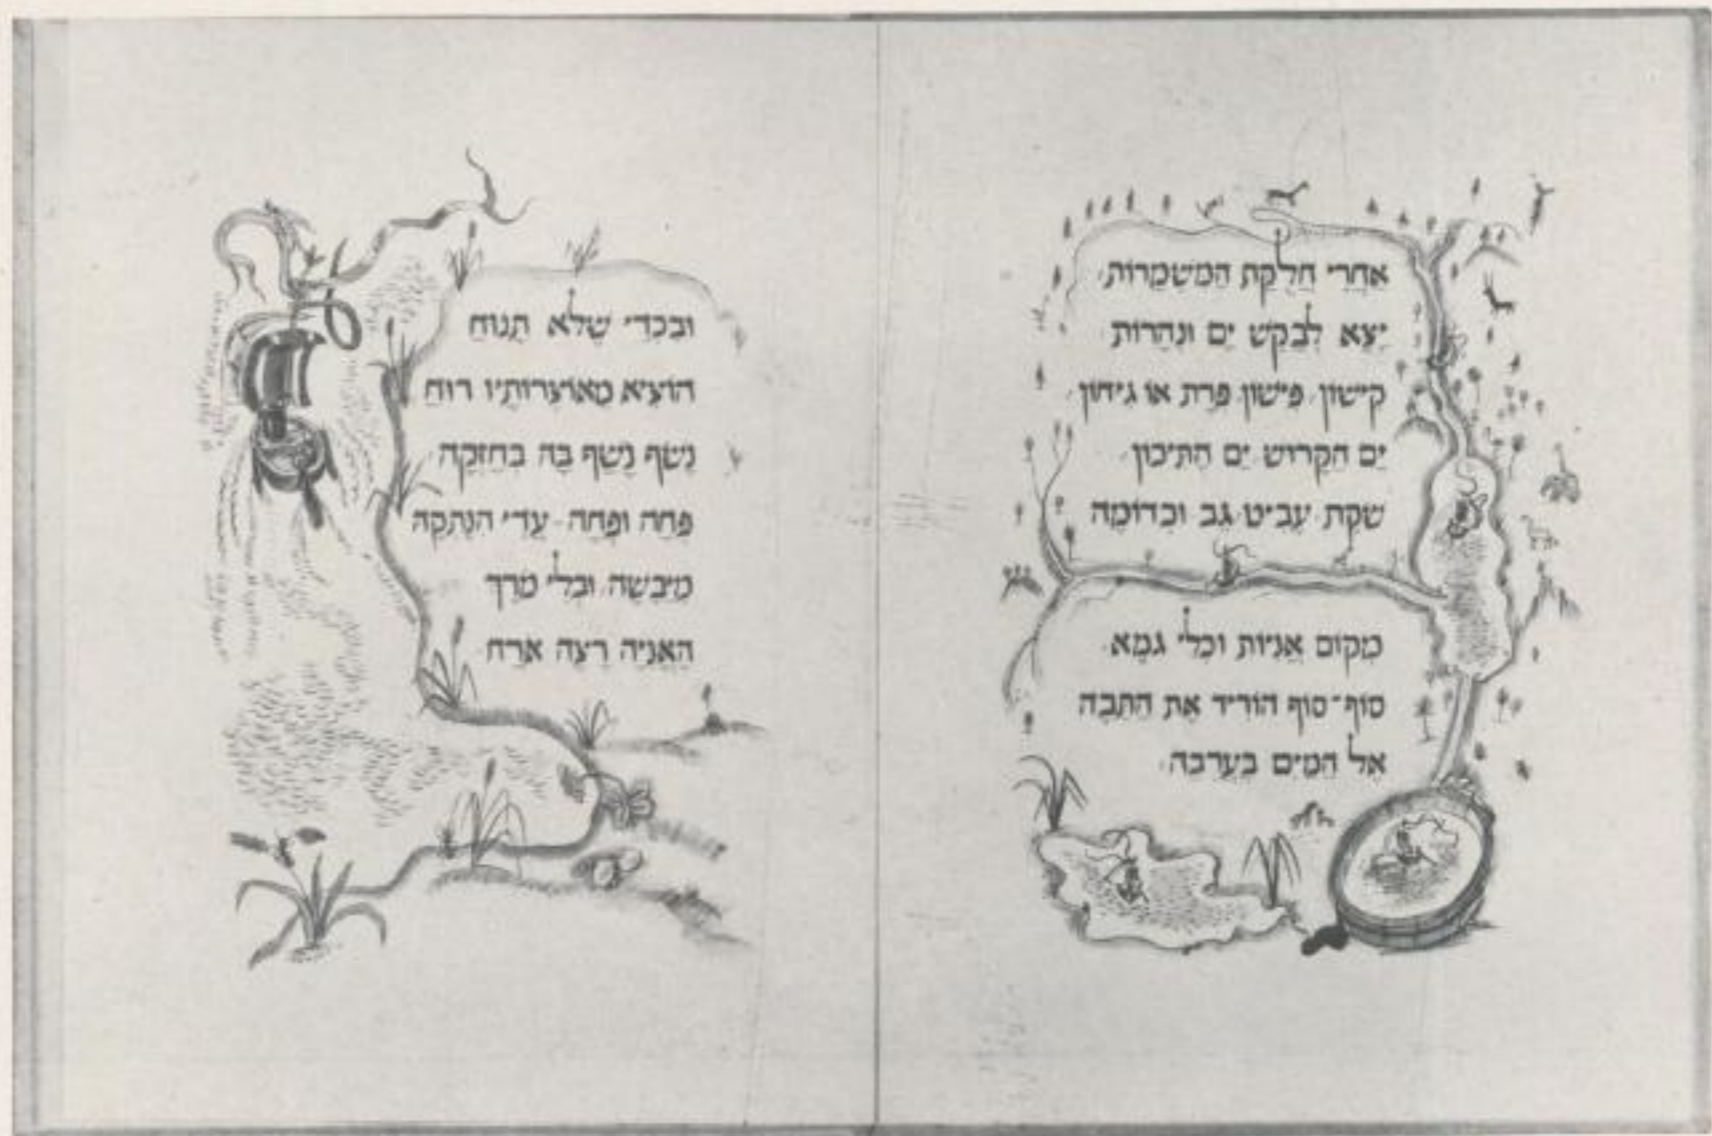 אַחֲרֵי חֲלֻקַּת הַמִּשְׁמָרוֹת,
יָצָא לְבַקֵּשׁ יָם וּנְהָרוֹת
קִישׁוֹן, פִּישׁוֹן, פְּרָת אוֹ גִיחוֹן,
יַם הַקָּרוּשׁ יַם הַתִּיכוֹן,
שֹׁקֶת, עָבִיט, גֵּב וְכַדּוֹמֶה
מְקוֹם אֳנִיּוֹת וּכְלֵי גֹמֶא.
סוֹף־סוֹף הוֹרִיד אֶת הַתֵּבָה
אֶל הַמַּיִם בָּעֲרֵבָה.
וּבִכְדֵי שֶׁלֹּא תָנוּחַ
הוֹצִיא מֵאוֹצְרוֹתָיו רוּחַ
נָשֹׁף נָשַׁף בָּהּ בְּחָזְקָה,
פָּחָה וּפָחָה - עֲדֵי הִנָּתְקָהּ
מִיַּבָּשָׁה, וּבְלִי מֹרֶךְ
הָאֳנִיָּה רָצָה אֹרַח